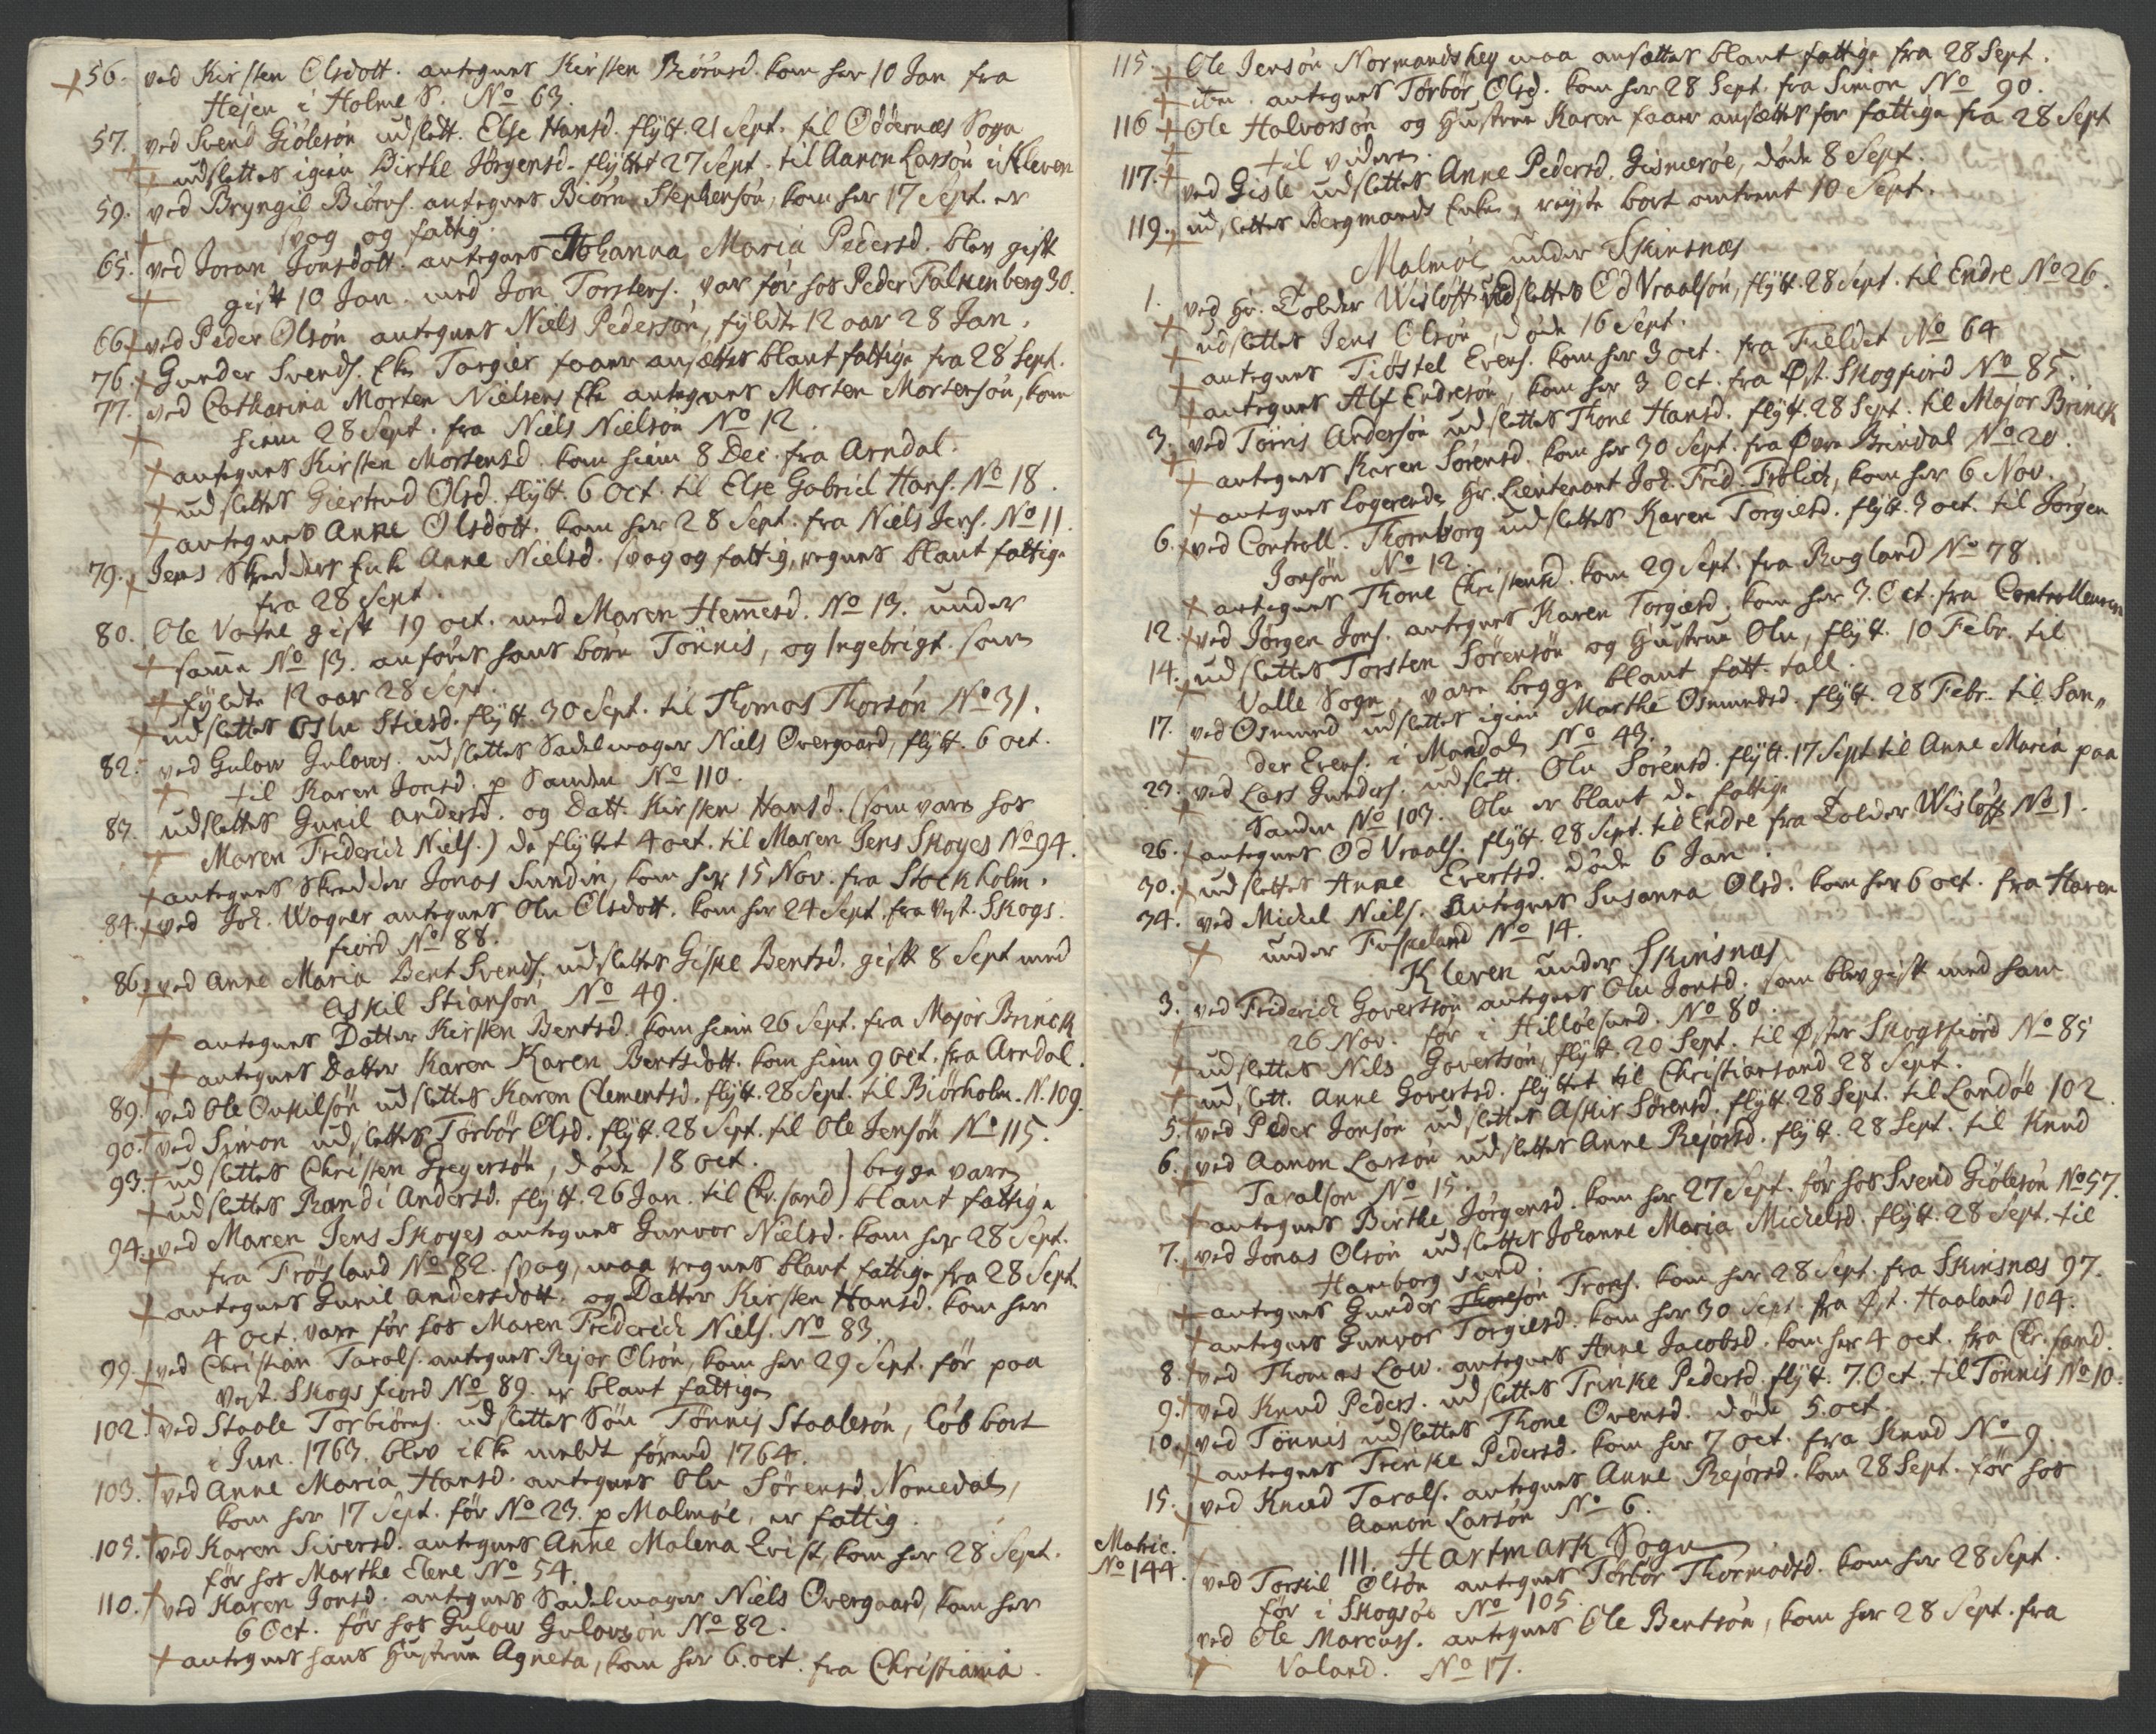 56. ved Kirsten Olsdott. antegnes Kirsten Biörnsd. kom her 10 Jan fra
Hejen i Holme S. No 63.
57. ved Svend Giölesön udslett. Else Hansd. flÿtt. 21 Sept. til Oddernæs Sogn
udslettes igien Birthe Jörgensd. flÿttet 27 Sept. til Aanon Larsön i Kleven
59. ved Bryngil Biörns. antegnes Biörn Stephensön, kom her 17 Sept. er
svag og fattig.
65. ved Joran Jonsdott. antegnes Johanna Maria Pedersd. blev gift
gift 10 Jan. med Jon Torstens. var för hos Peder Falkenberg 30.
66. ved Peder Olsön antegnes Niels Pedersön, fÿldte 12 aar 28 Jan.
76. Gunder Svends. Enke Torgier faaer ansættes blant fattige fra 28 Sept.
77. ved Catharina Morten Nielsens Enke antegnes Morten Mortensön, kom
hiem 28 Sept. fra Niels Nielsön No 12.
antegnes Kirsten Mortensd. kom hiem 8 Dec. fra Arndal.
udslettes Giertrud Olsd. flÿtt. 6 Oct. til Else Gabriel Hans. No 18.
antegnes Anne Olsdott. kom her 28 Sept. fra Niels Jens. No 11.
79. Jens Skredders Enke Anne Nielsd. svag og fattig, regnes blant fattige
fra 28 Sept.
80. Ole Vatne gift 19 oct. med Maren Hemmesd. No 13. under
samme No 13. anföris hans börn Tönnis, og Ingebrigt som
fÿldte 12 aar 28 Sept.
udslettes Oslu Stiesd. flÿtt. 30 Sept. til Thomas Thorsön No 31.
82. ved Gulow Gulows. udslettes Sadelmager Niels Overgaard, flÿtt. 6 oct.
til Karen Jonsd. p Sanden No 110.
83. udslettes Gunil Andersd. og Datt. Kirsten Hansd. (som vare hos
Maren Friderich Niels.) de flÿttet 4 oct. til Maren Jens Skoyes No 94.
antegnes Skredder Jonas Sundin, kom her 15 Nov. fra Stockholm.
84. ved Joh. Wagner antegnes Olu Olsdott. kom her 24 Sept. fra Vest. Skogs
fiord No 88.
86. ved Anne Maria Bent Svends. udslettes Giske Bentsd. gift 8 Sept med
Askil Stiansön, No 49.
antegnes Datter Kirsten Bentsd. kom hiem 26 Sept. fra Major Brinck
antegnes Datter Karen Karen Bentsdott. kom hiem 9 Oct. fra Arndal.
89. ved Ole Onkilsön udslettes Karen Clementsd. flÿtt. 28 Sept. til Biörholm. N. 109.
90. ved Simon udslettes Törbör Olsd. flÿtt. 28 Sept. til Ole Jensön No 115.
93. udslettes Christen Gregersön, döde 18 oct. } begge vare
udslettes Randi Andersd. flÿtt. 26 Jan. til Chr.sand } blant fattige
94. ved Maren Jens Skoyes antegnes Gunvor Nielsd. kom her 28 Sept.
fra Tröjsland No 82. svag, maa regnes blant fattige fra 28 Sept.
antegnes Gunil Andersdott. og Datter Kirsten Hansd. kom her
4 Oct. vare för hos Maren Friderich Niels. No 83.
99. ved Christian Tarals. antegnes Rejor Olsön, kom her 29 Sept. för paa
Vest. Skogs fiord No 89. er blant fattige
102. ved Staale Torbiörns. udslettes Sön Tönnis Staalesön, löb bort
i Jun. 1763. blev ikke meldt förend 1764.
103. ved Anne Maria Hansd. antegnes Olu Sörensd. Nomedal,
kom her 17 Sept. för No 23. p Malmöe, er fattig.
109. ved Karen Siversd. antegnes Anne Malena Evist, kom her 28 Sept.
för hos Marthe Elene No 54.
110. ved Karen Jonsd. antegnes Sadelmager Niels Overgaard, kom her
6 Oct. för hos Gulow Gulowsön No 82.
antegnes hans Hustrue Agneta, kom her 6. oct. fra Christiania.
115. Ole Jensön Normandshey maa ansættes blant fattige fra 28 Sept.
item. antegnes Törbör Olsd. kom her 28 Sept. fra Simon No 90.
116 Ole Halvorsön og Hustrue Karen faaer ansættes for fattige fra 28 Sept
til videre.
117. ved Gisle udslettes Anne Pedersd. Gismeröe, döde 8 Sept.
119. udslettes Bergmands Enke, reyste bort omtrent 10 Sept.
Malmöe under Skinsnæs
1. ved Hr. Tolder Wislöft udslettes Od Vraalsön, flÿtt. 28 Sept. til Endre No 26.
udslettes Jens Olsön, döde 16 Sept.
antegnes Tiöstel Evens. kom her 3 oct. fra Fieldet No 64
antegnes Alf Endresön, kom her 3 Oct. fra Øst. Skogfiord No 85.
3. ved Törris Andersön udslettes Thone Hansd. flÿtt. 28 Sept. til Major Brinck
antegnes Karen Sörensd. kom her 30 Sept. fra Øvre Brindal No 20.
antegnes Logerende Hr. Lieutenant Joh. Frid. Frölich, kom her 6 Nov.
6. ved Controll. Thornborg udslettes Karen Torgiesd. flÿtt. 3 oct. til Jörgen
Jonsön No 12.
antegnes Thone Christensd. kom 29 Sept. fra Rugland No 78.
12. ved Jörgen Jons. antegnes Karen Torgiesd. kom her 3. Oct. fra Controlleuren
14. udslettes Torsten Sörensön og Hustrue Olu, flÿtt. 10 Febr. til
Valle Sogn, vare begge blant fatt. tall.
17. ved Osmund udslettes igien Marthe Osmundsd. flÿtt. 28 Febr. til San„
der Evens. i Mandal No 43.
23. ved Lars Gunders. udslett. Olu Sörensd. flÿtt. 17 Sept til Anne Maria paa
Sanden No 103. Olu er blant de fattige
26. antegnes Od Vraals. flÿtt. 28 Sept. til Endre fra Tolder Wislöft No 1.
30. udslettes Anne Evertsd. döde 6 Jan.
34. ved Michel Niels. antegnes Susanna Olsd. kom her 6 oct. fra Haven
under Fuskeland No 14.
Kleven under Skinsnæs
3. ved Friderich Govertsön antegnes Olu Jonsd. som blev gift med ham
26 Nov. för i Hillöesund. No 80.
udslettes Nils Govertsön, flÿtt. 20 Sept. til Øster Skogsfiord No 85
udslett. Anne Govertsd. flÿttet til Christiansand 28 Sept.
5. ved Peder Jonsön udslettes Askir Sörensd. flÿtt. 28 Sept. til Landöe 102.
6. ved Aanon Larsön udslettes Anne Rejorsd. flÿtt. 28 Sept. til Knud
Taralsön No 15.
antegnes Birthe Jörgensd. kom her 27 Sept. för hos Svend Giölesön No 57.
7. ved Jonas Olsön udslettes Johanne Maria Michelsd. flÿtt. 28 Sept. til
Hamborg sund.
antegnes Gunder Trons. kom her 28 Sept. fra Skinsnæs 97.
antegnes Gunvor Torgiesd. kom her 30 Sept. fra Øst. Haaland 104.
8. ved Thomas Low. antegnes Anne Jacobsd. kom her 4 oct. fra Chr.sand.
9. ved Knud Peders. udslettes Trinke Pedersd. flÿtt. 7. Oct. til Tönnis No 10.
10. ved Tönnis udslettes Thone Ovensd. döde 5. oct.
antegnes Trinke Pedersd. kom her 7 oct. fra Knud No 9
15. ved Knud Tarals. antegnes Anne Rejorsd. kom 28 Sept. för hos
Aanon Larsön No 6.
III. Hartmark Sogn
Matric.
No 144. ved Torkil Olsön antegnes Törbör Thormodsd. kom her 28 Sept.
för i Skogsöe No 105.
ved Ole Marcuss. antegnes Ole Bentsön, kom her 28 Sept. fra
Valand. No 17.